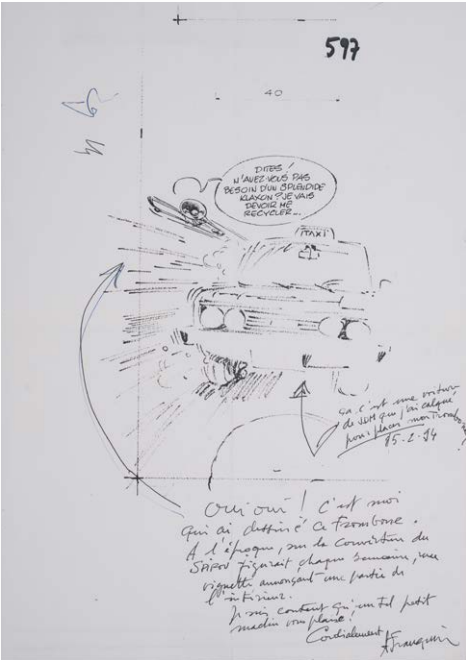 597
40
DITES !
N'AVEZ-VOUS PAS
BESOIN D'UN SPLENDIDE
KLAXON ? JE VAIS
DEVOIR ME
RECYCLER...
TAXI
ça c'est une voiture
de que j'ai calqué
pour placer mon Trombone
15-2-94
Oui oui ! c'est moi
qui ai dessiné ce Trombone.
A l'époque, sur la couverture du
figurait chaque semaine, une
vignette annonçant une partie de
l'intérieur.
Je suis content qu'un tel petit
machin vous plaise.
Cordialement Franquin